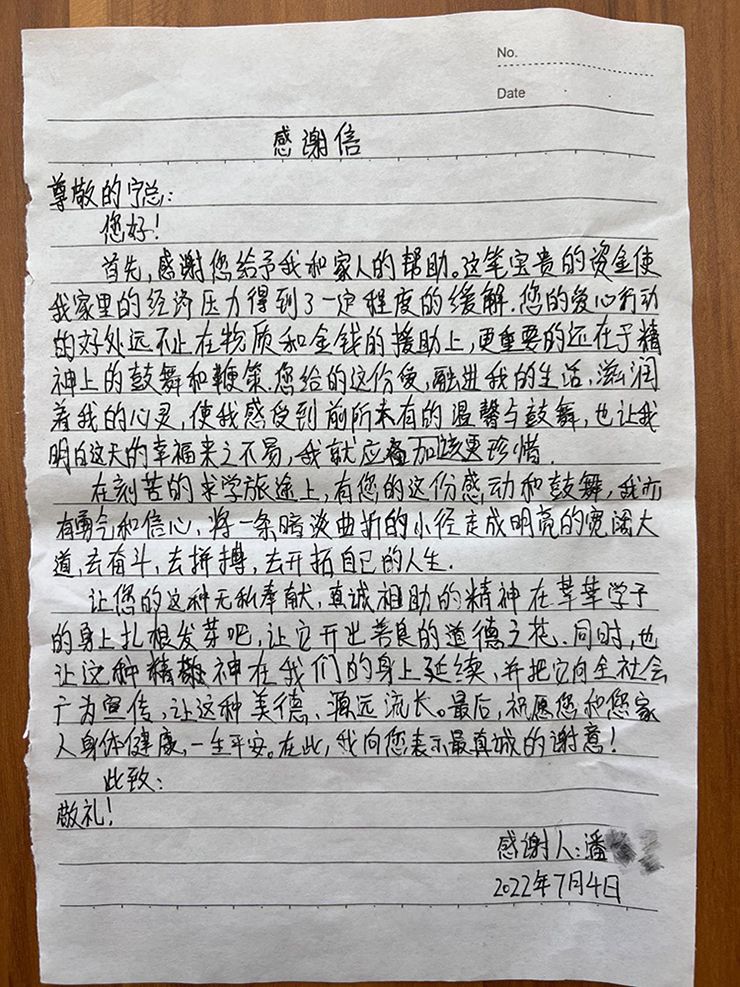 No.
Date
感谢信
尊敬的宁总：
您好！
首先，感谢您给予我和家人的帮助。这笔宝贵的资金使
我家里的经济压力得到了一定程度的缓解．您的爱心行动
的好处远不止在物质和金钱的援助上，更重要的还在于精
神上的鼓舞和鞭策．您给的这份爱，融进我的生活，滋润
着我的心灵，使我感受到前所未有的温馨与鼓舞，也让我
明白这天的幸福来之不易，我就应加该更珍惜．
在刻苦的求学旅途上，有您的这份感动和鼓舞，我亦
有勇气和信心，将一条暗淡曲折的小径走成明亮的宽阔大
道，去奋斗，去拼搏，去开拓自己的人生．
让您的这种无私奉献，真诚相助的精神在莘莘学子
的身上扎根发芽吧，让它开出善良的道德之花．同时，也
让这种精神在我们的身上延续，并把它向全社会
广为宣传，让这种美德、源远流长。最后，祝愿您和您家
人身体健康，一生平安。在此，我向您表示最真诚的谢意！
此致：
敬礼！
感谢人：潘
2022年7月4日